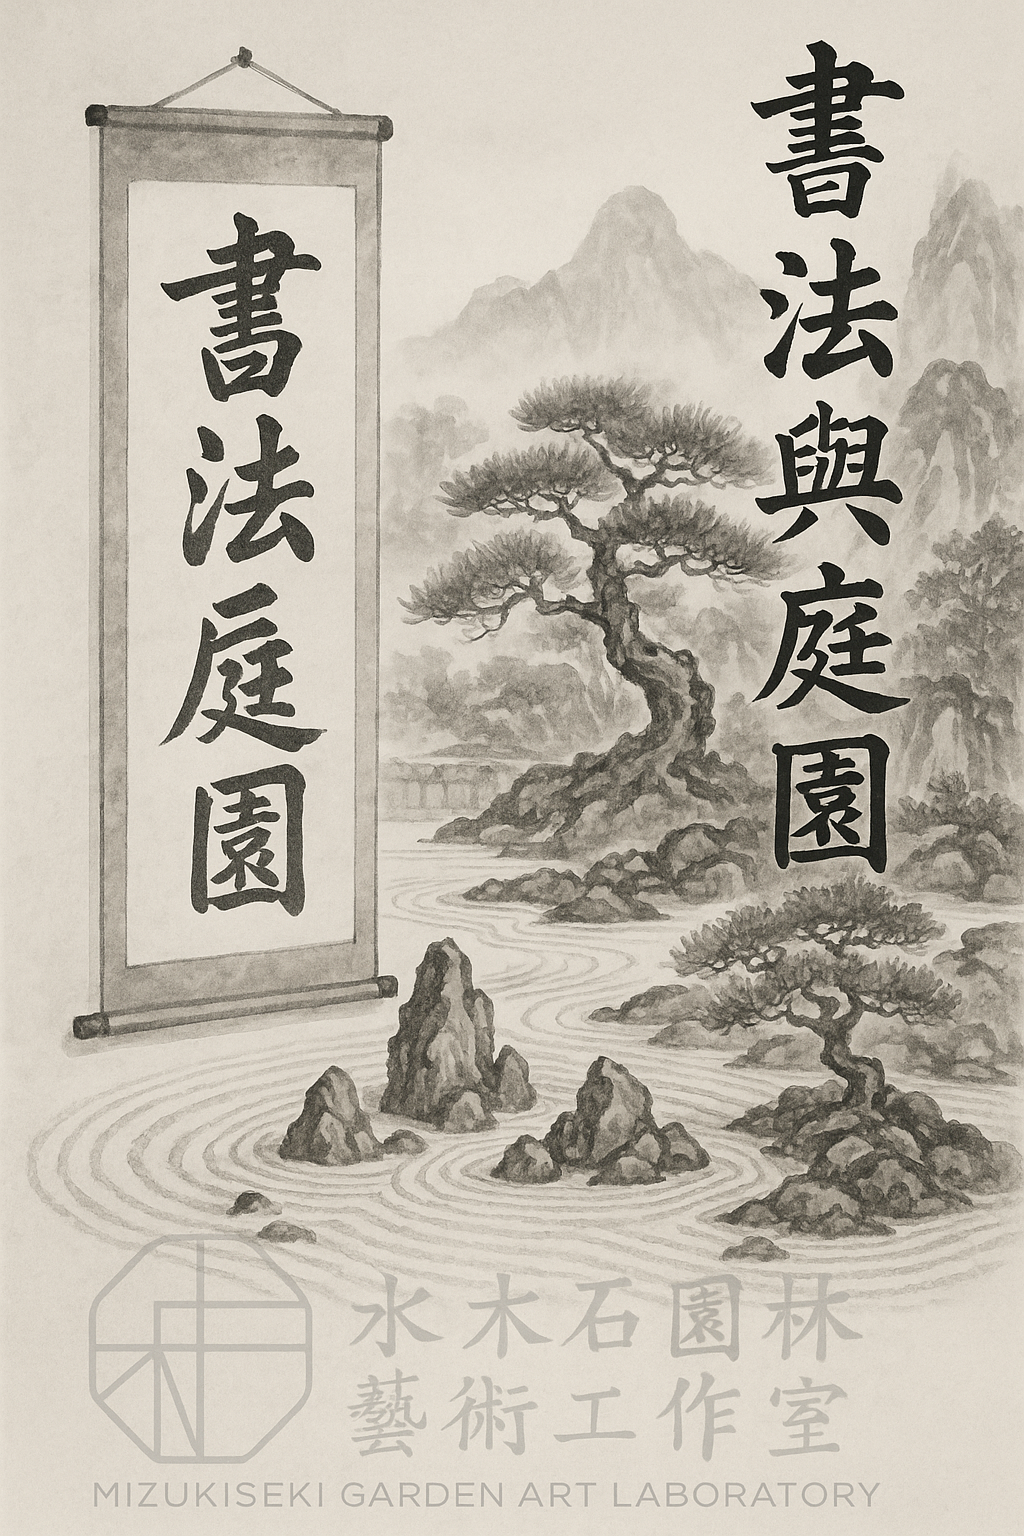 書法與庭園
書法庭園
水木石園林
藝術工作室
MIZUKISEKI GARDEN ART LABORATORY